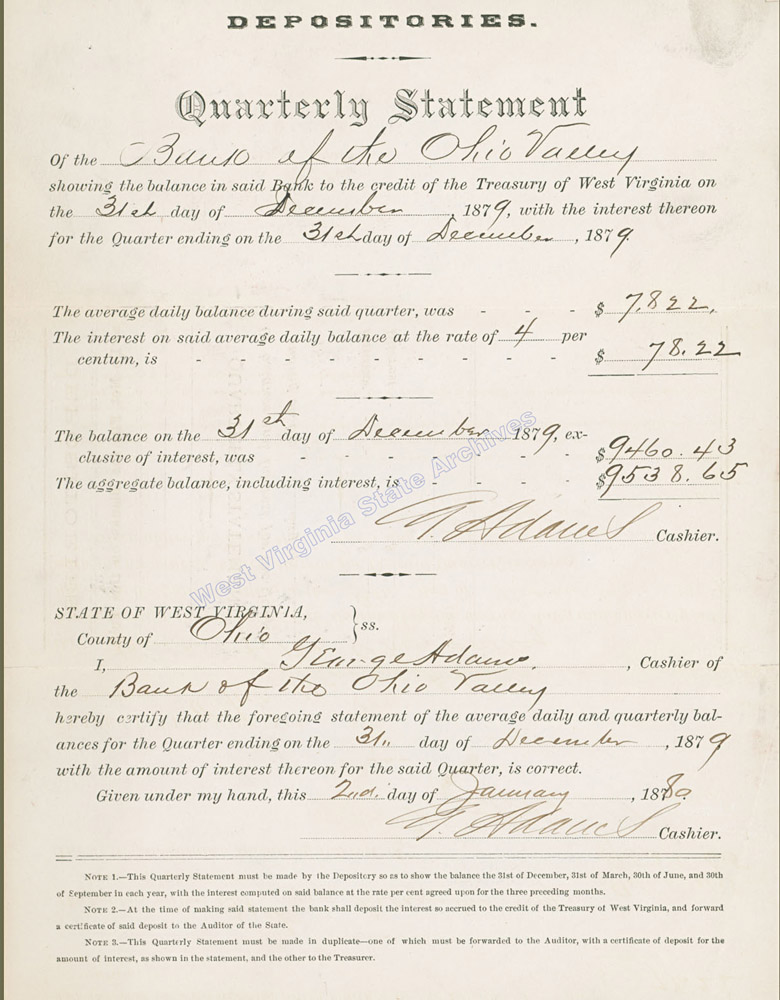 DEPOSITORIES.
Quarterly Statement
Of the Bank of the Ohio Valley
showing the balance in said Bank to the credit of the Treasury of West Virginia on
the 31st day of December, 1879, with the interest thereon
for the Quarter ending on the 31st day of December, 1879.
The average daily balance during said quarter, was - - - $ 7,822.
The interest on said average daily balance at the rate of 4 per
centum, is - - - - - - - - - - $ 78.22
The balance on the 31st day of December 1879, ex-
clusive of interest, was - - - - - - - $9460.43
The aggregate balance, including interest, is - - - - - $9538.65
G. Adams Cashier.
West Virginia State Archives
STATE OF WEST VIRGINIA,
County of Ohio } ss.
I, George Adams, Cashier of
the Bank of the Ohio Valley
hereby certify that the foregoing statement of the average daily and quarterly bal-
ances for the Quarter ending on the 31. day of December, 1879
with the amount of interest thereon for the said Quarter, is correct.
Given under my hand, this 2nd. day of January, 1880.
G. Adams Cashier.
NOTE 1.—This Quarterly Statement must be made by the Depository so as to show the balance the 31st of December, 31st of March, 30th of June, and 30th
of September in each year, with the interest computed on said balance at the rate per cent agreed upon for the three preceding months.
NOTE 2.—At the time of making said statement the bank shall deposit the interest so accrued to the credit of the Treasury of West Virginia, and forward
a certificate of said deposit to the Auditor of the State.
NOTE 3.—This Quarterly Statement must be made in duplicate—one of which must be forwarded to the Auditor, with a certificate of deposit for the
amount of interest, as shown in the statement, and the other to the Treasurer.